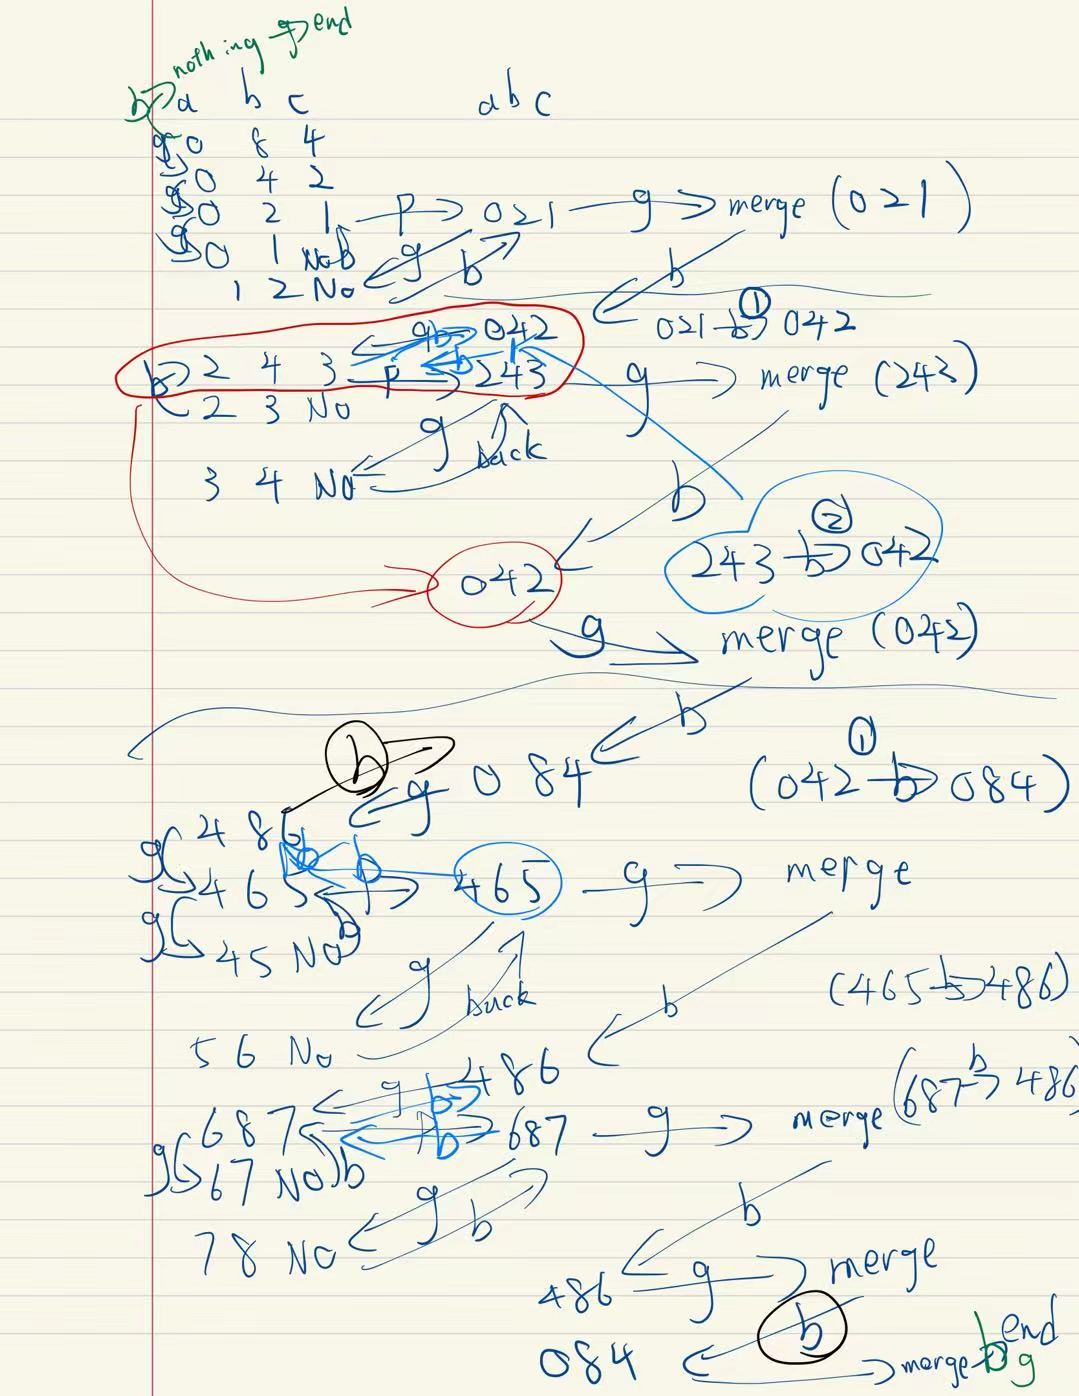 nothing g end
b a b c a b c
g 0 8 4
g 0 4 2
g 0 2 1 p 021 g merge (021)
g 0 1 No b g b b
1 2 No
① 021 b 042
g b 042
b 2 4 3 p b 243 g merge (243)
2 3 No
g back
3 4 No b
②
243 b 042
042
g merge (042)
b
b ①
g 084 (042 b 084)
g 4 8 6
b
g 4 6 5 p 465 g merge
4 5 No b
g back b (465 b 486)
5 6 No
g b 486 (687 b 486)
687 p b 687 g merge
g 67 No b
g b b
78 No
486 g merge
b
084 merge b g end